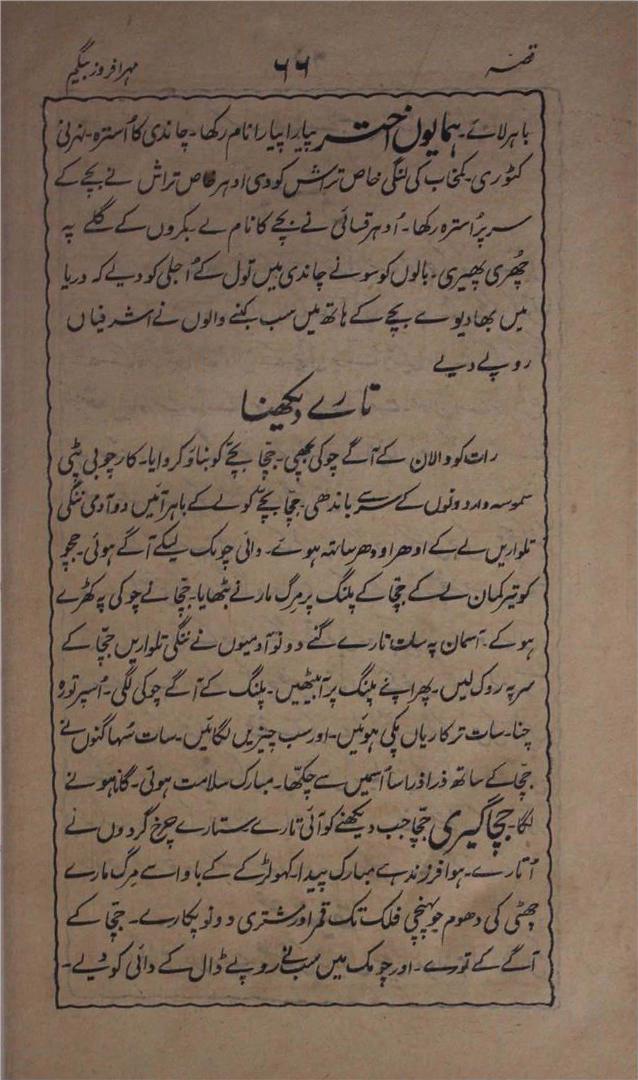 قصّہ ۶۶ مہرافروز بیگم
باہر لائے۔ ہمایوں اختر پیارا پیارا نام رکھا۔ چاندی کا اُسترہ۔ نہرنی
کٹوری۔ کمخاب کی لنگی خاص تراش کو دی اودہر خاص تراش نے بچے کے
سر پر اُسترہ رکھا۔ اُودہر قسائی نے بچے کا نام لے بکروں کے گلے پہ
چھُری پھیری۔ بالوں کو سونے چاندی میں تول کے اُجلی کو دیے کہ دریا
میں بہا دیوے بچے کے ہاتھ میں سب کنبے والوں نے اشرفیاں
روپے دیے
تارے دیکھنا
رات کو والان کے آگے چوکی بچھی۔ جچّا بچّے کو بناؤ کروایا۔ کارچوبی پٹی
سموسہ دار دونوں کے سر سے باندھی۔ جچّا بچّے کو لے کے باہر آئیں دو آدمی ننگی
تلواریں لے کے ادھر اودھر ساتہ ہوئے۔ دائی چومک لیکے آگے ہوئی۔ ججو
کو تیر کمان لے کے جچّا کے پلنگ پر مرگ مارنے بٹھایا۔ جچّا نے چوکی پہ کھڑے
ہوکے۔ آسمان پہ سات تارے گنے دونو آدمیوں نے ننگی تلواریں جچّا کے
سر پہ روک لیں۔ پھر اپنے پلنگ پر آبیٹھیں۔ پلنگ کے آگے چوکی لگی۔ اُسپر تورہ
چنا۔ سات ترکاریاں پکی ہوئیں۔ اور سب چیزیں لگائیں۔ سات سُہاگنوں نے
جچّا کے ساتھ ذرا ذرا سا اُسمیں سے چکھا۔ مبارک سلامت ہوئی۔ گانا ہونے
لگا۔ جچّا گیری جچّا جب دیکھنے کو آئی تارے ستارے چرخ گردوں نے
اُتارے۔ ہوا فرزند ہے مبارک پیدا۔ کہو لڑکے کے باوا سے مرگ مارے
چھٹی کی دھوم جو پہنچی فلک تک قمر اور مشتری دونو پکارے۔ جچّا کے
آگے کے تورے۔ اور چومک میں سب نے روپے ڈال کے دائی کو دیے۔